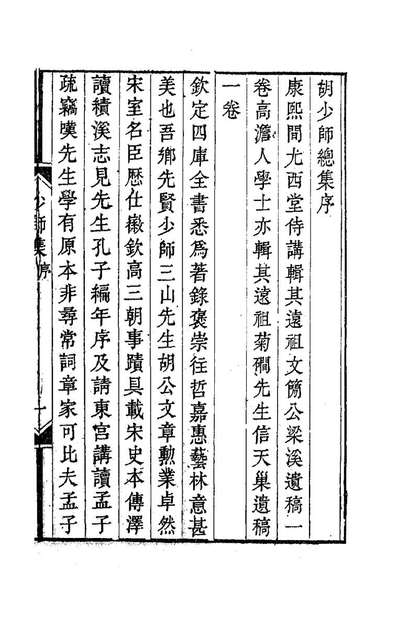 胡少師總集序
康熙間尤西堂侍講輯其遠祖文簡公梁溪遺稿一
卷高澹人學士亦輯其遠祖菊磵先生信天巢遺稿
一卷
欽定四庫全書悉爲著錄褒崇往哲嘉惠藝林意甚
美也吾鄉先賢少師三山先生胡公文章勲業卓然
宋室名臣歷仕徽欽高三朝事蹟具載宋史本傳澤
讀積溪志見先生孔子編年序及請東宮講讀孟子
疏竊嘆先生學有原本非尋常詞章家可比夫孟子
少師集序
一